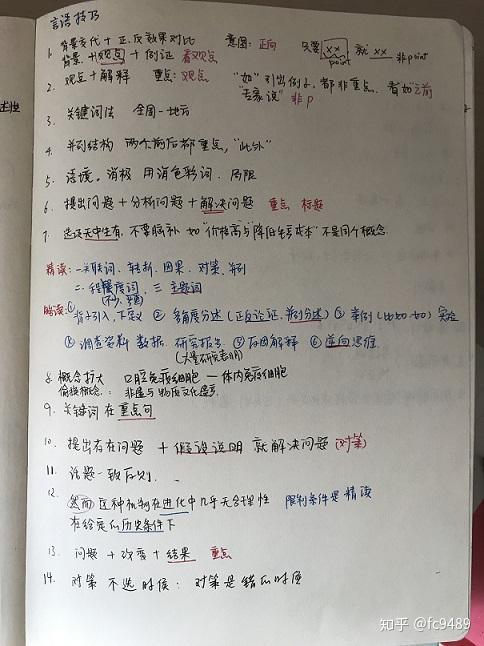 言语技巧
1. 背景变化 + 正、反效果对比 意图：正向 只要 xx 就 xx 非point
point
背景 + 观点 + 例证 看观点
2. 观点 + 解释 重点：观点 "如"引出例子，都非重点，看如之前
"专家说" 非p
3. 关键词法 全国—地方
4. 并列结构 两个前后都重点，"此外"
5. 语境，消极 用消色彩词、局限
6. 提出问题 + 分析问题 + 解决问题 重点 标题
7. 选项无中生有，不要脑补 如"价格高"与"降低生产成本"不是同个概念
精读：一关联词、转折、因果、对策、并列
二、程度词、三 主题词
略读：① 背景引入、下定义 ② 多角度分述（正反论证、并列分述）③ 举例（比如 如）实验
④ 调查资料 数据 研究报告 ⑤ 原因解释 ⑥ 逆向思维
（大量研究表明）
8. 概念扩大 口腔免疫细胞 — 体内免疫细胞
偷换概念：非遗与物质文化遗产
9. 关键词在重点句
10. 提出存在问题 + 假设说明 就解决问题（对策）
11. 话题一致原则
12. 然而 这种机制在进化中几乎无合理性 限制条件是精读
在给定的历史条件下
13. 问题 + 改变 + 结果 重点
14. 对策 不选时候：对策是错的时候
知乎 @fc9489